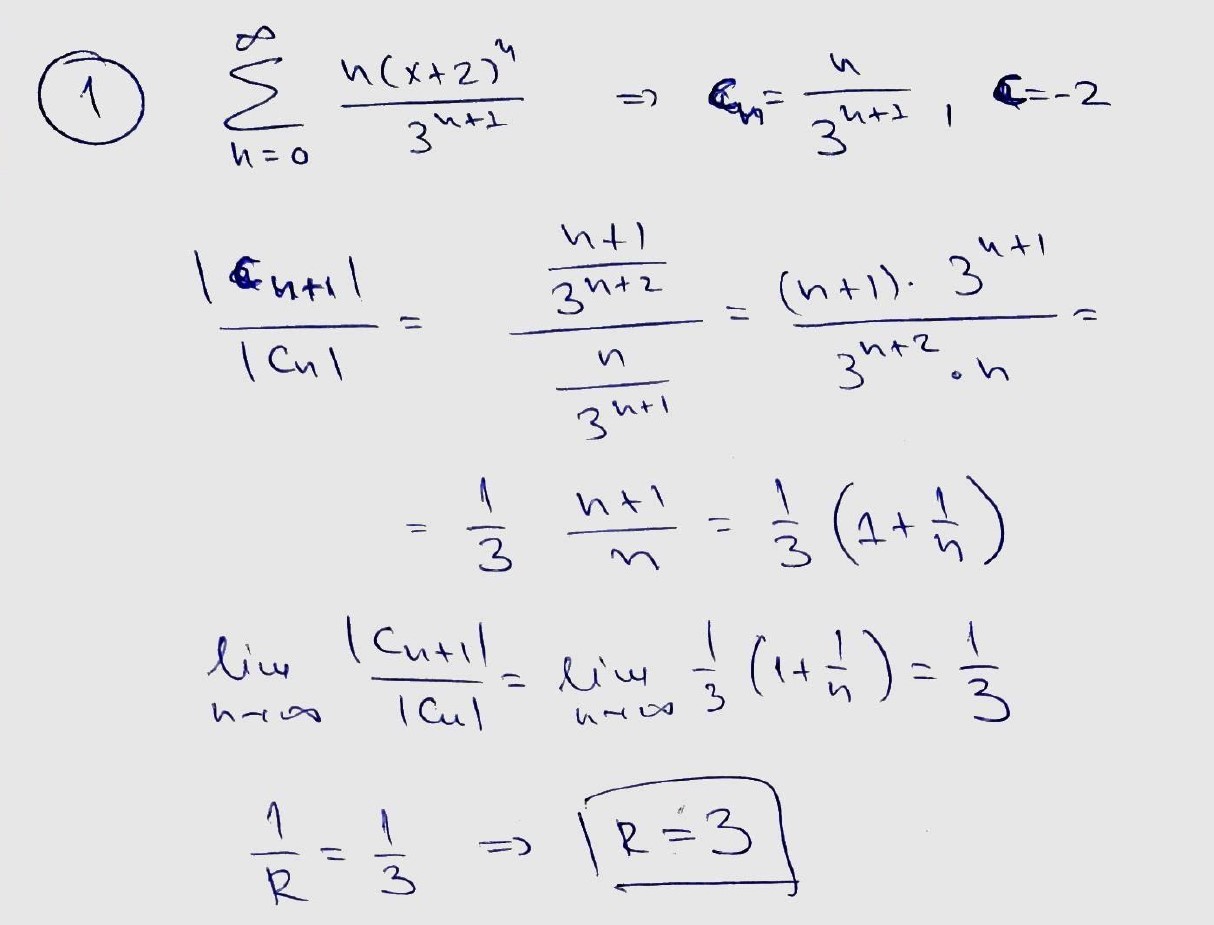 ① \sum_{n=0}^{\infty} \frac{n(x+2)^n}{3^{n+1}} => C_n = \frac{n}{3^{n+1}}, C=-2
\frac{|C_{n+1}|}{|C_n|} = \frac{\frac{n+1}{3^{n+2}}}{\frac{n}{3^{n+1}}} = \frac{(n+1)\cdot 3^{n+1}}{3^{n+2}\cdot n} =
= \frac{1}{3} \frac{n+1}{n} = \frac{1}{3} (1+\frac{1}{n})
\lim_{n→∞} \frac{|C_{n+1}|}{|C_n|} = \lim_{n→∞} \frac{1}{3} (1+\frac{1}{n}) = \frac{1}{3}
\frac{1}{R} = \frac{1}{3} => R=3